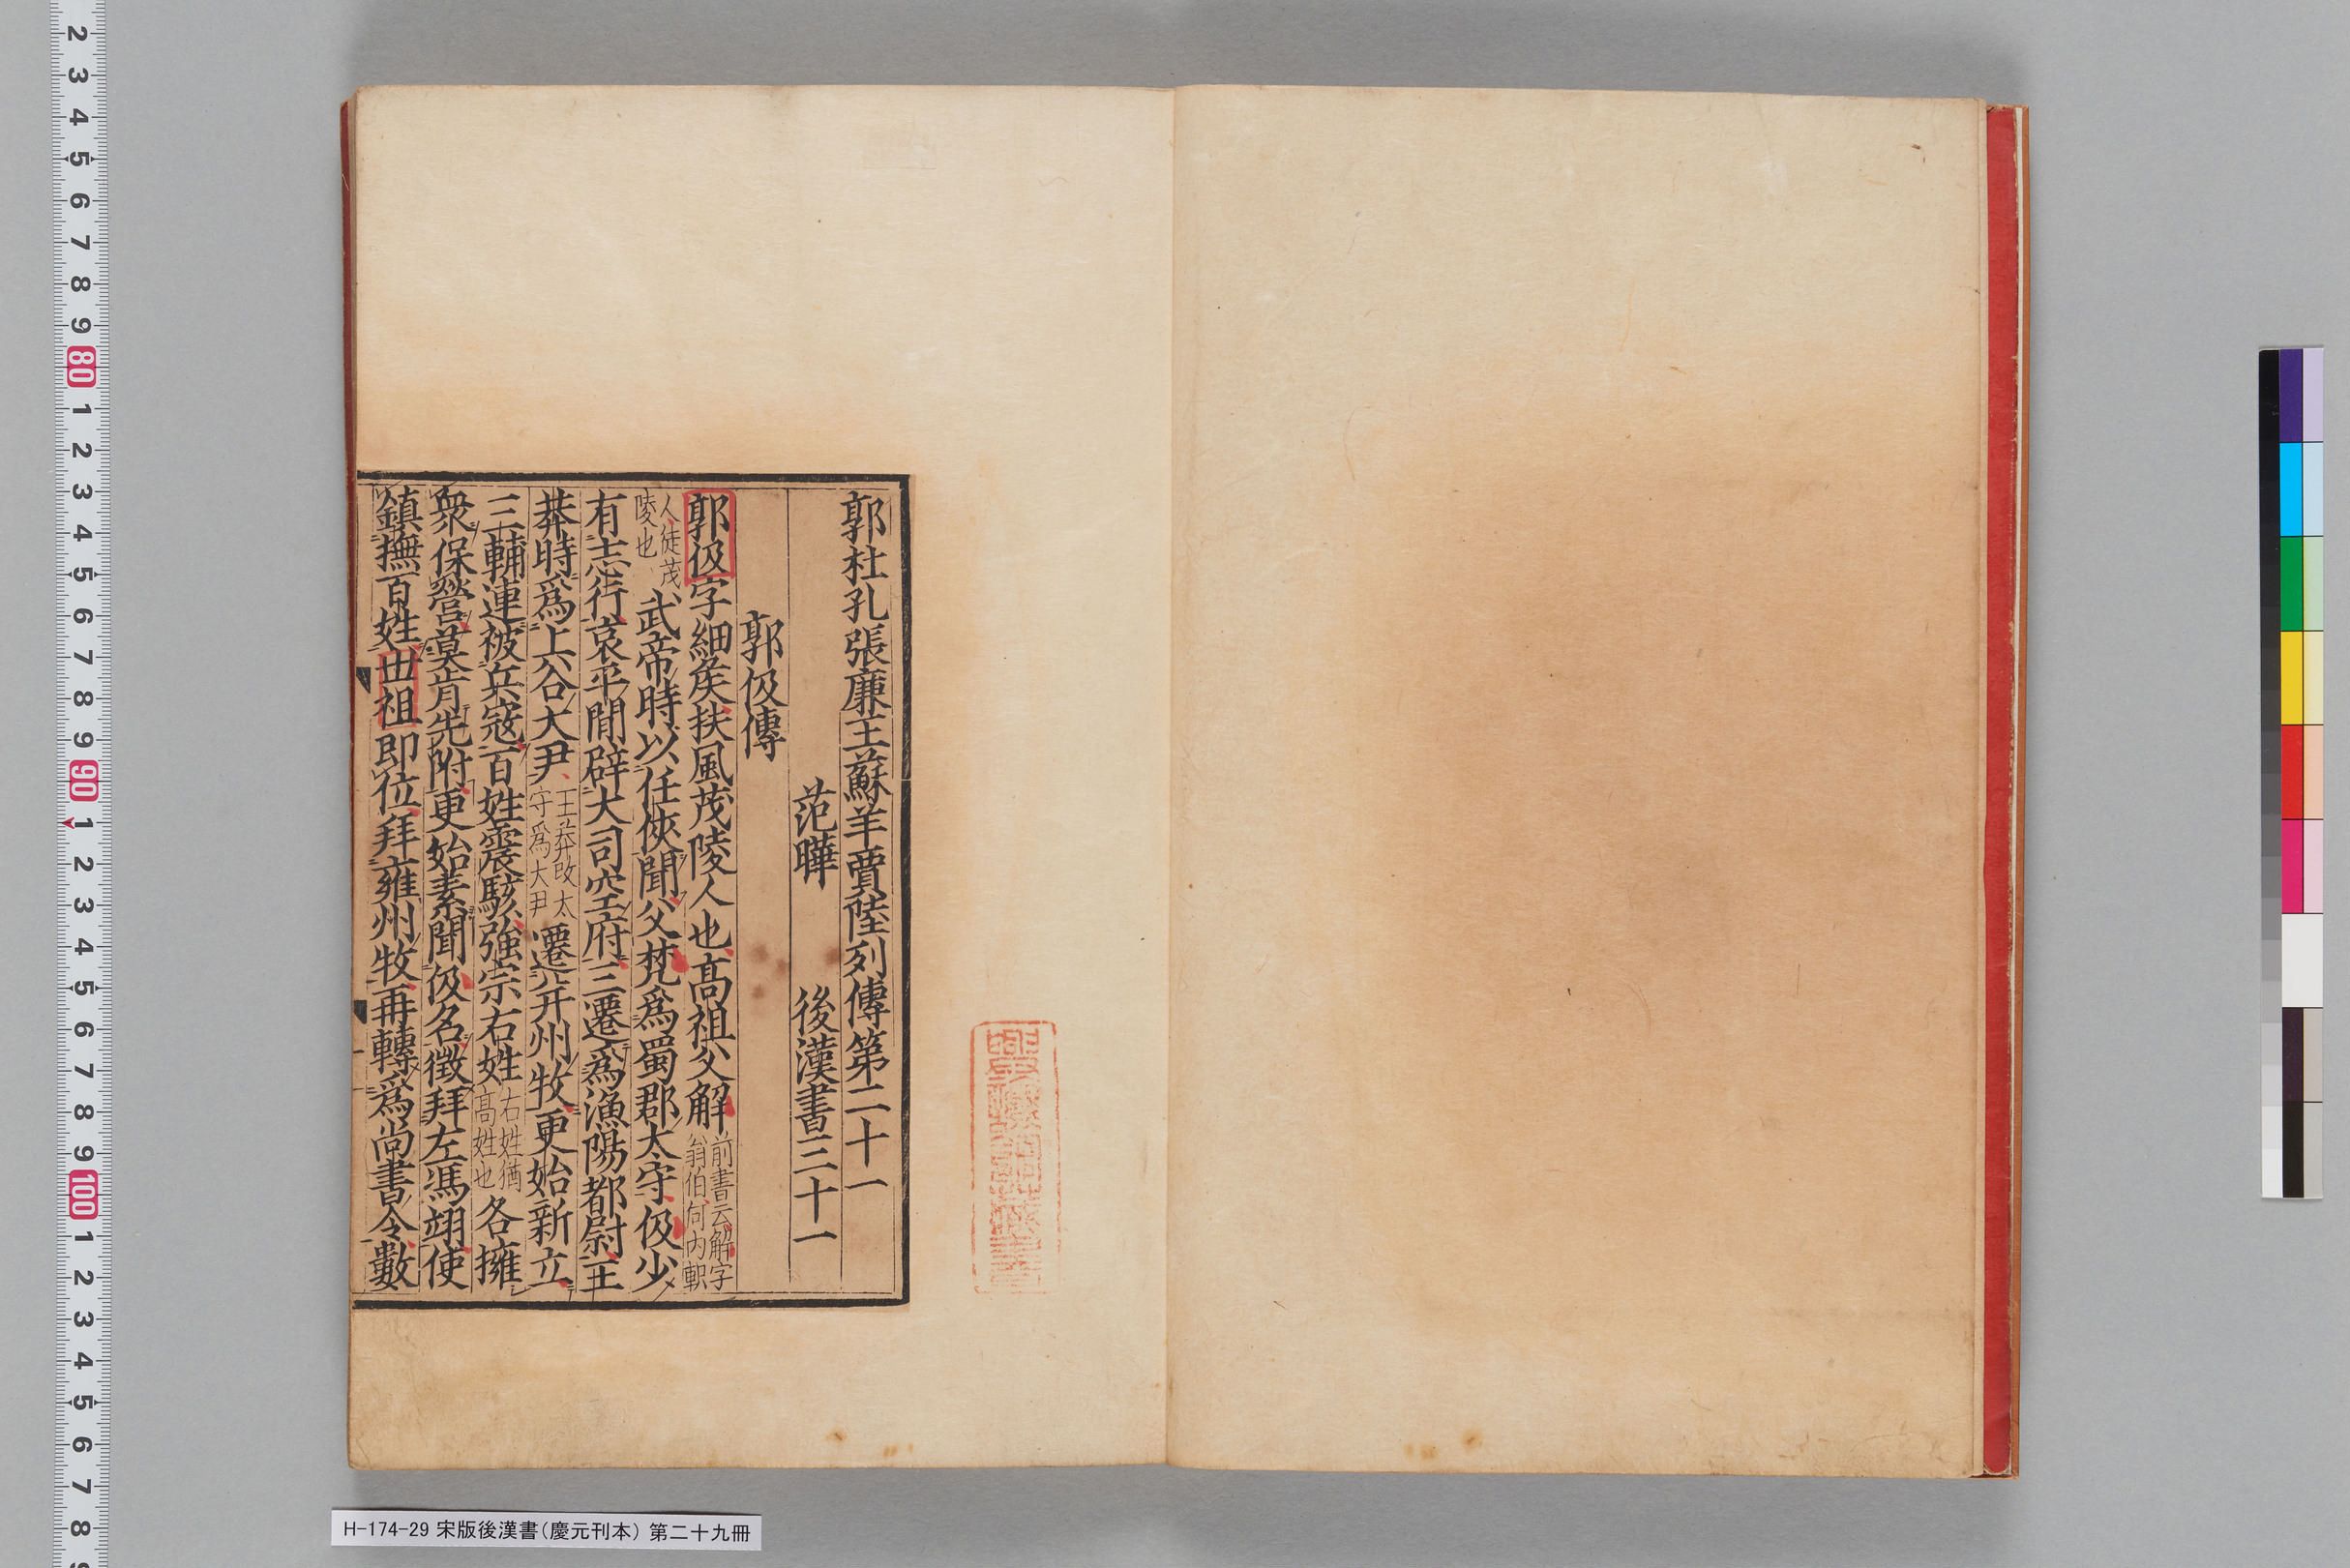 郭杜孔張廉王蘇羊賈陸列傳第二十一
范曄 後漢書三十一
郭伋傳
郭伋字細侯扶風茂陵人也高祖父解前書云解字翁伯河內軹
人徒茂陵也武帝時以任俠聞父梵爲蜀郡太守伋少
有志行哀平閒辟大司空府三遷爲漁陽都尉王
莽時爲上谷大尹王莽改太守爲大尹遷并州牧更始新立
三輔連被兵寇百姓震駭強宗右姓右姓猶高姓也各擁
衆保營莫肯先附更始素聞伋名徵拜左馮翊使
鎮撫百姓世祖即位拜雍州牧再轉爲尚書令數
H-174-29 宋版後漢書(慶元刊本) 第二十九冊
2
3
4
5
6
7
8
9
80
1
2
3
4
5
6
7
8
9
90
1
2
3
4
5
6
7
8
9
100
1
2
3
4
5
6
7
8